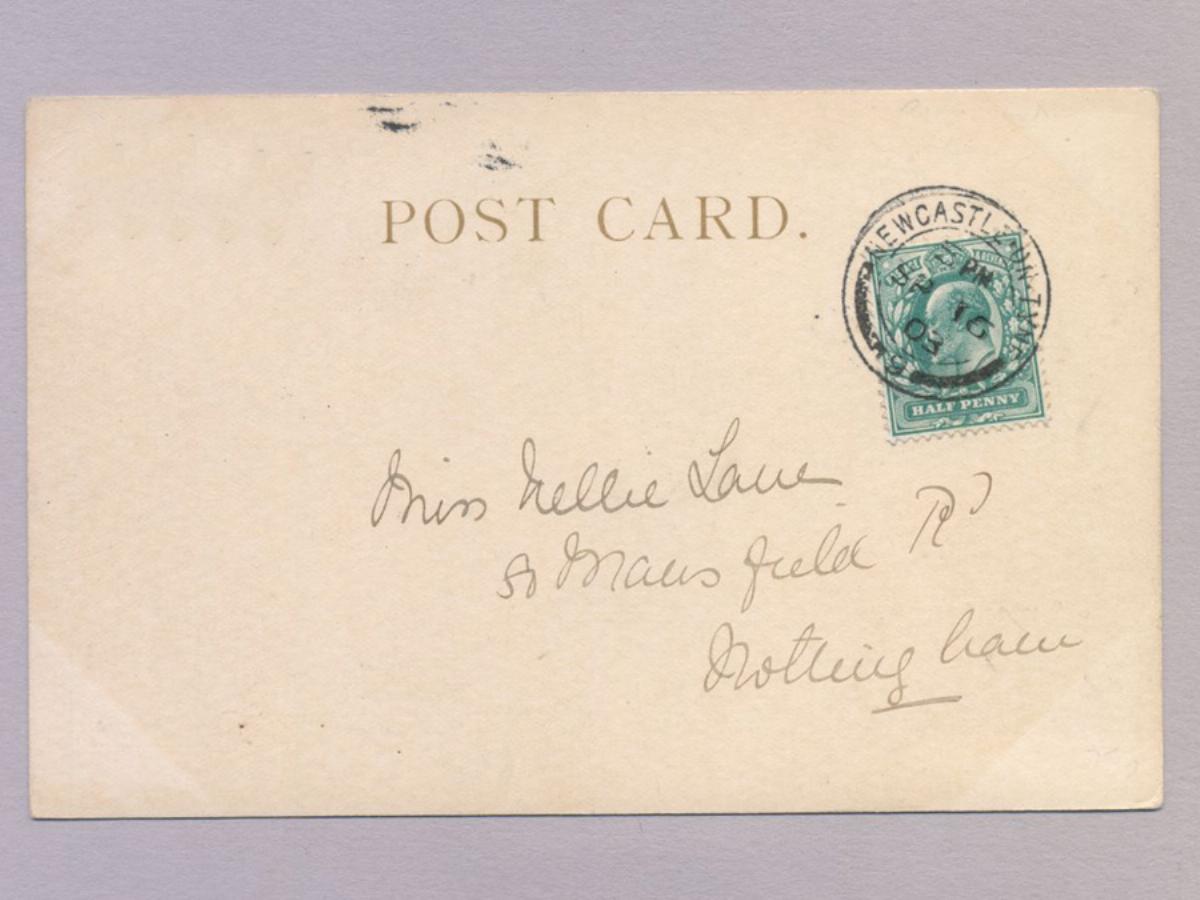 POST CARD.
NEWCASTLE-ON-TYNE
PM
16
03
HALF PENNY
Miss Nellie Lane
50 Mansfield Rd
Nottingham